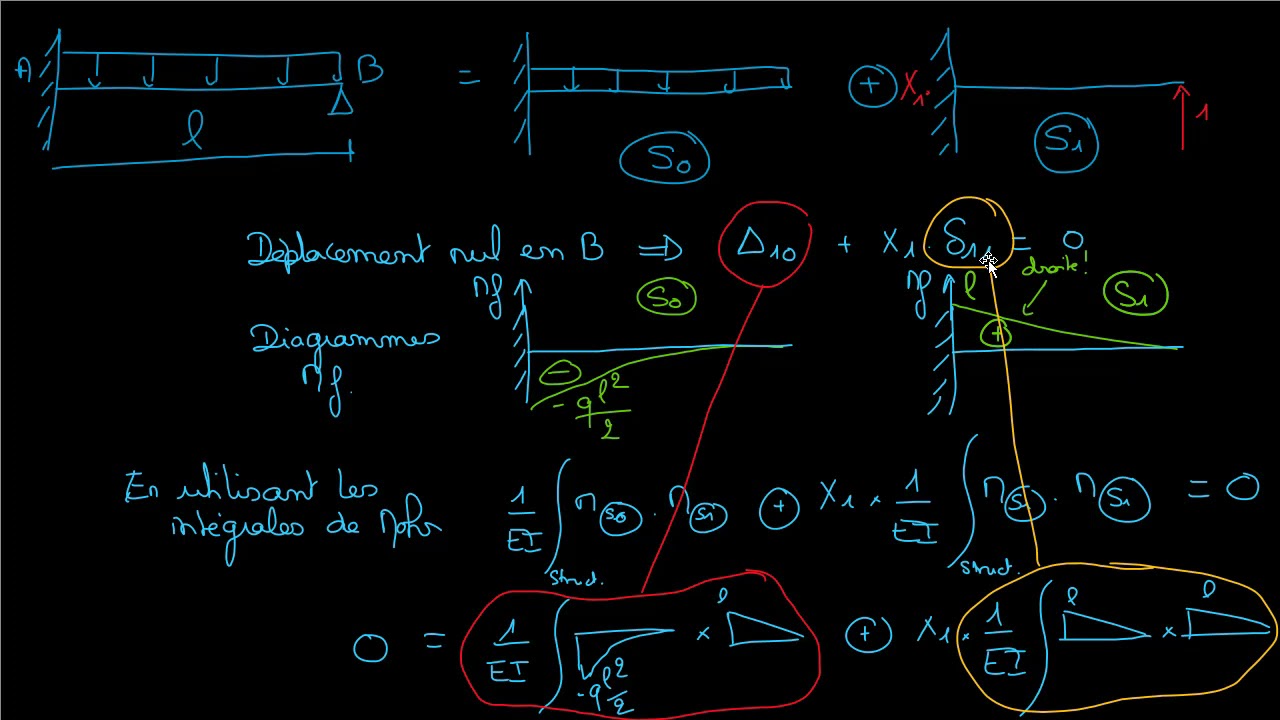 A B = ⊕ X₁. 1
l S₀ S₁
Déplacement nul en B ⟹ Δ₁₀ + X₁. δ₁₁ = 0
Mf S₀ Mf l droite! S₁
Diagrammes ⊖ ⊕
Mf. -ql²/2
En utilisant les
intégrales de Mohr 1/EI ∫struct. M(S₀) . M(S₁) ⊕ X₁ × 1/EI ∫struct. M(S₁) . M(S₁) = 0
0 = 1/EI ∫ -ql²/2 × l ⊕ X₁ × 1/EI ∫ l × l